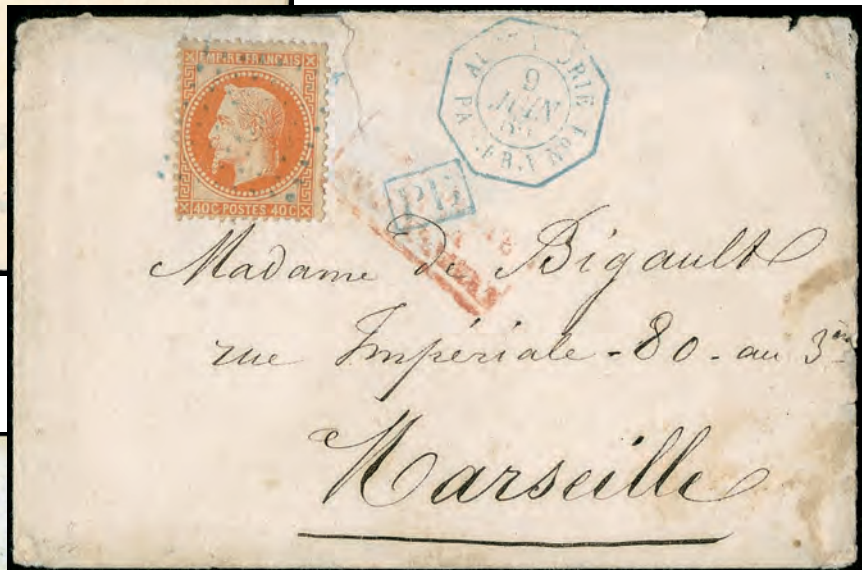 EMPIRE FRANÇAIS
40C POSTES 40C
9
JUIN
PAQ. FR. J No 1
PD
Madame de Bigault
rue Impériale - 80 - au 3me
Marseille